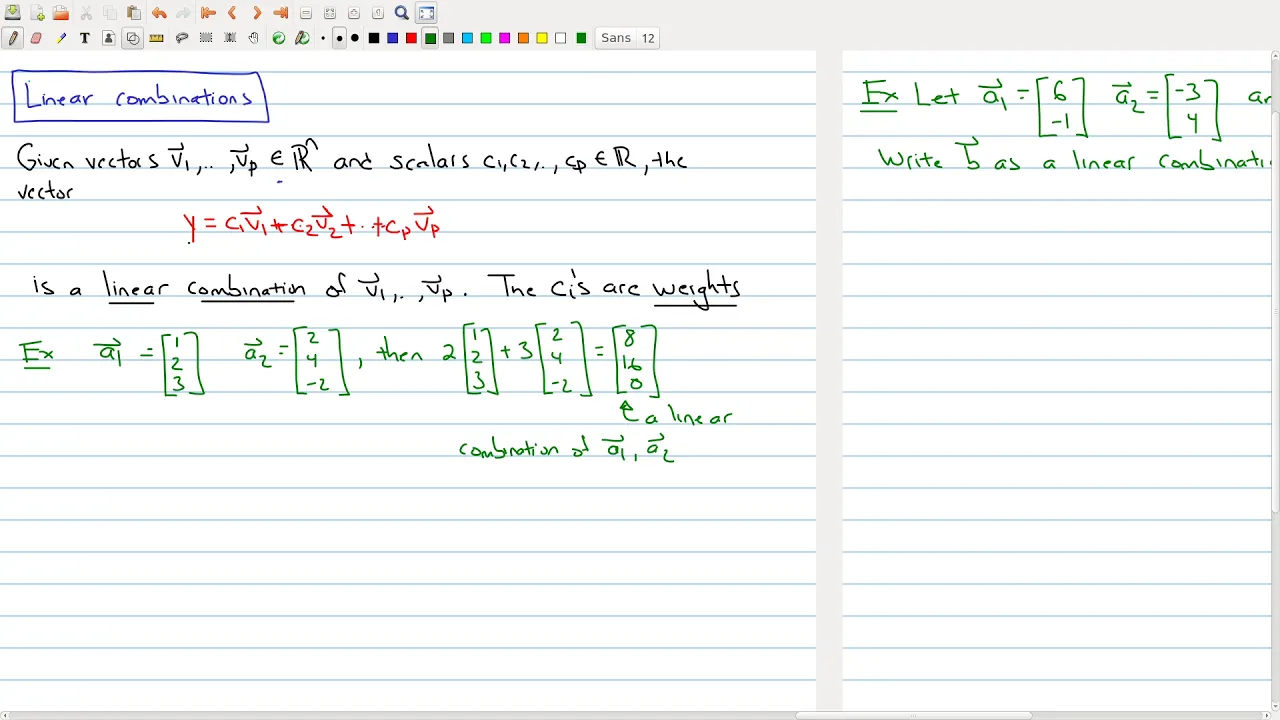 Sans 12
Linear combinations
Given vectors v⃗1,..,v⃗p ∈ ℝⁿ and scalars c1,c2,..,cp ∈ ℝ, the
vector
y = c1v⃗1+c2v⃗2+..+cpv⃗p
is a linear combination of v⃗1,..,v⃗p. The ci's are weights
Ex a⃗1 = [1 2 3] a⃗2 = [2 4 -2], then 2[1 2 3]+3[2 4 -2]=[8 16 0]
a linear
combination of a⃗1, a⃗2
Ex Let a⃗1 = [6 -1] a⃗2 = [-3 4]
Write b⃗ as a linear